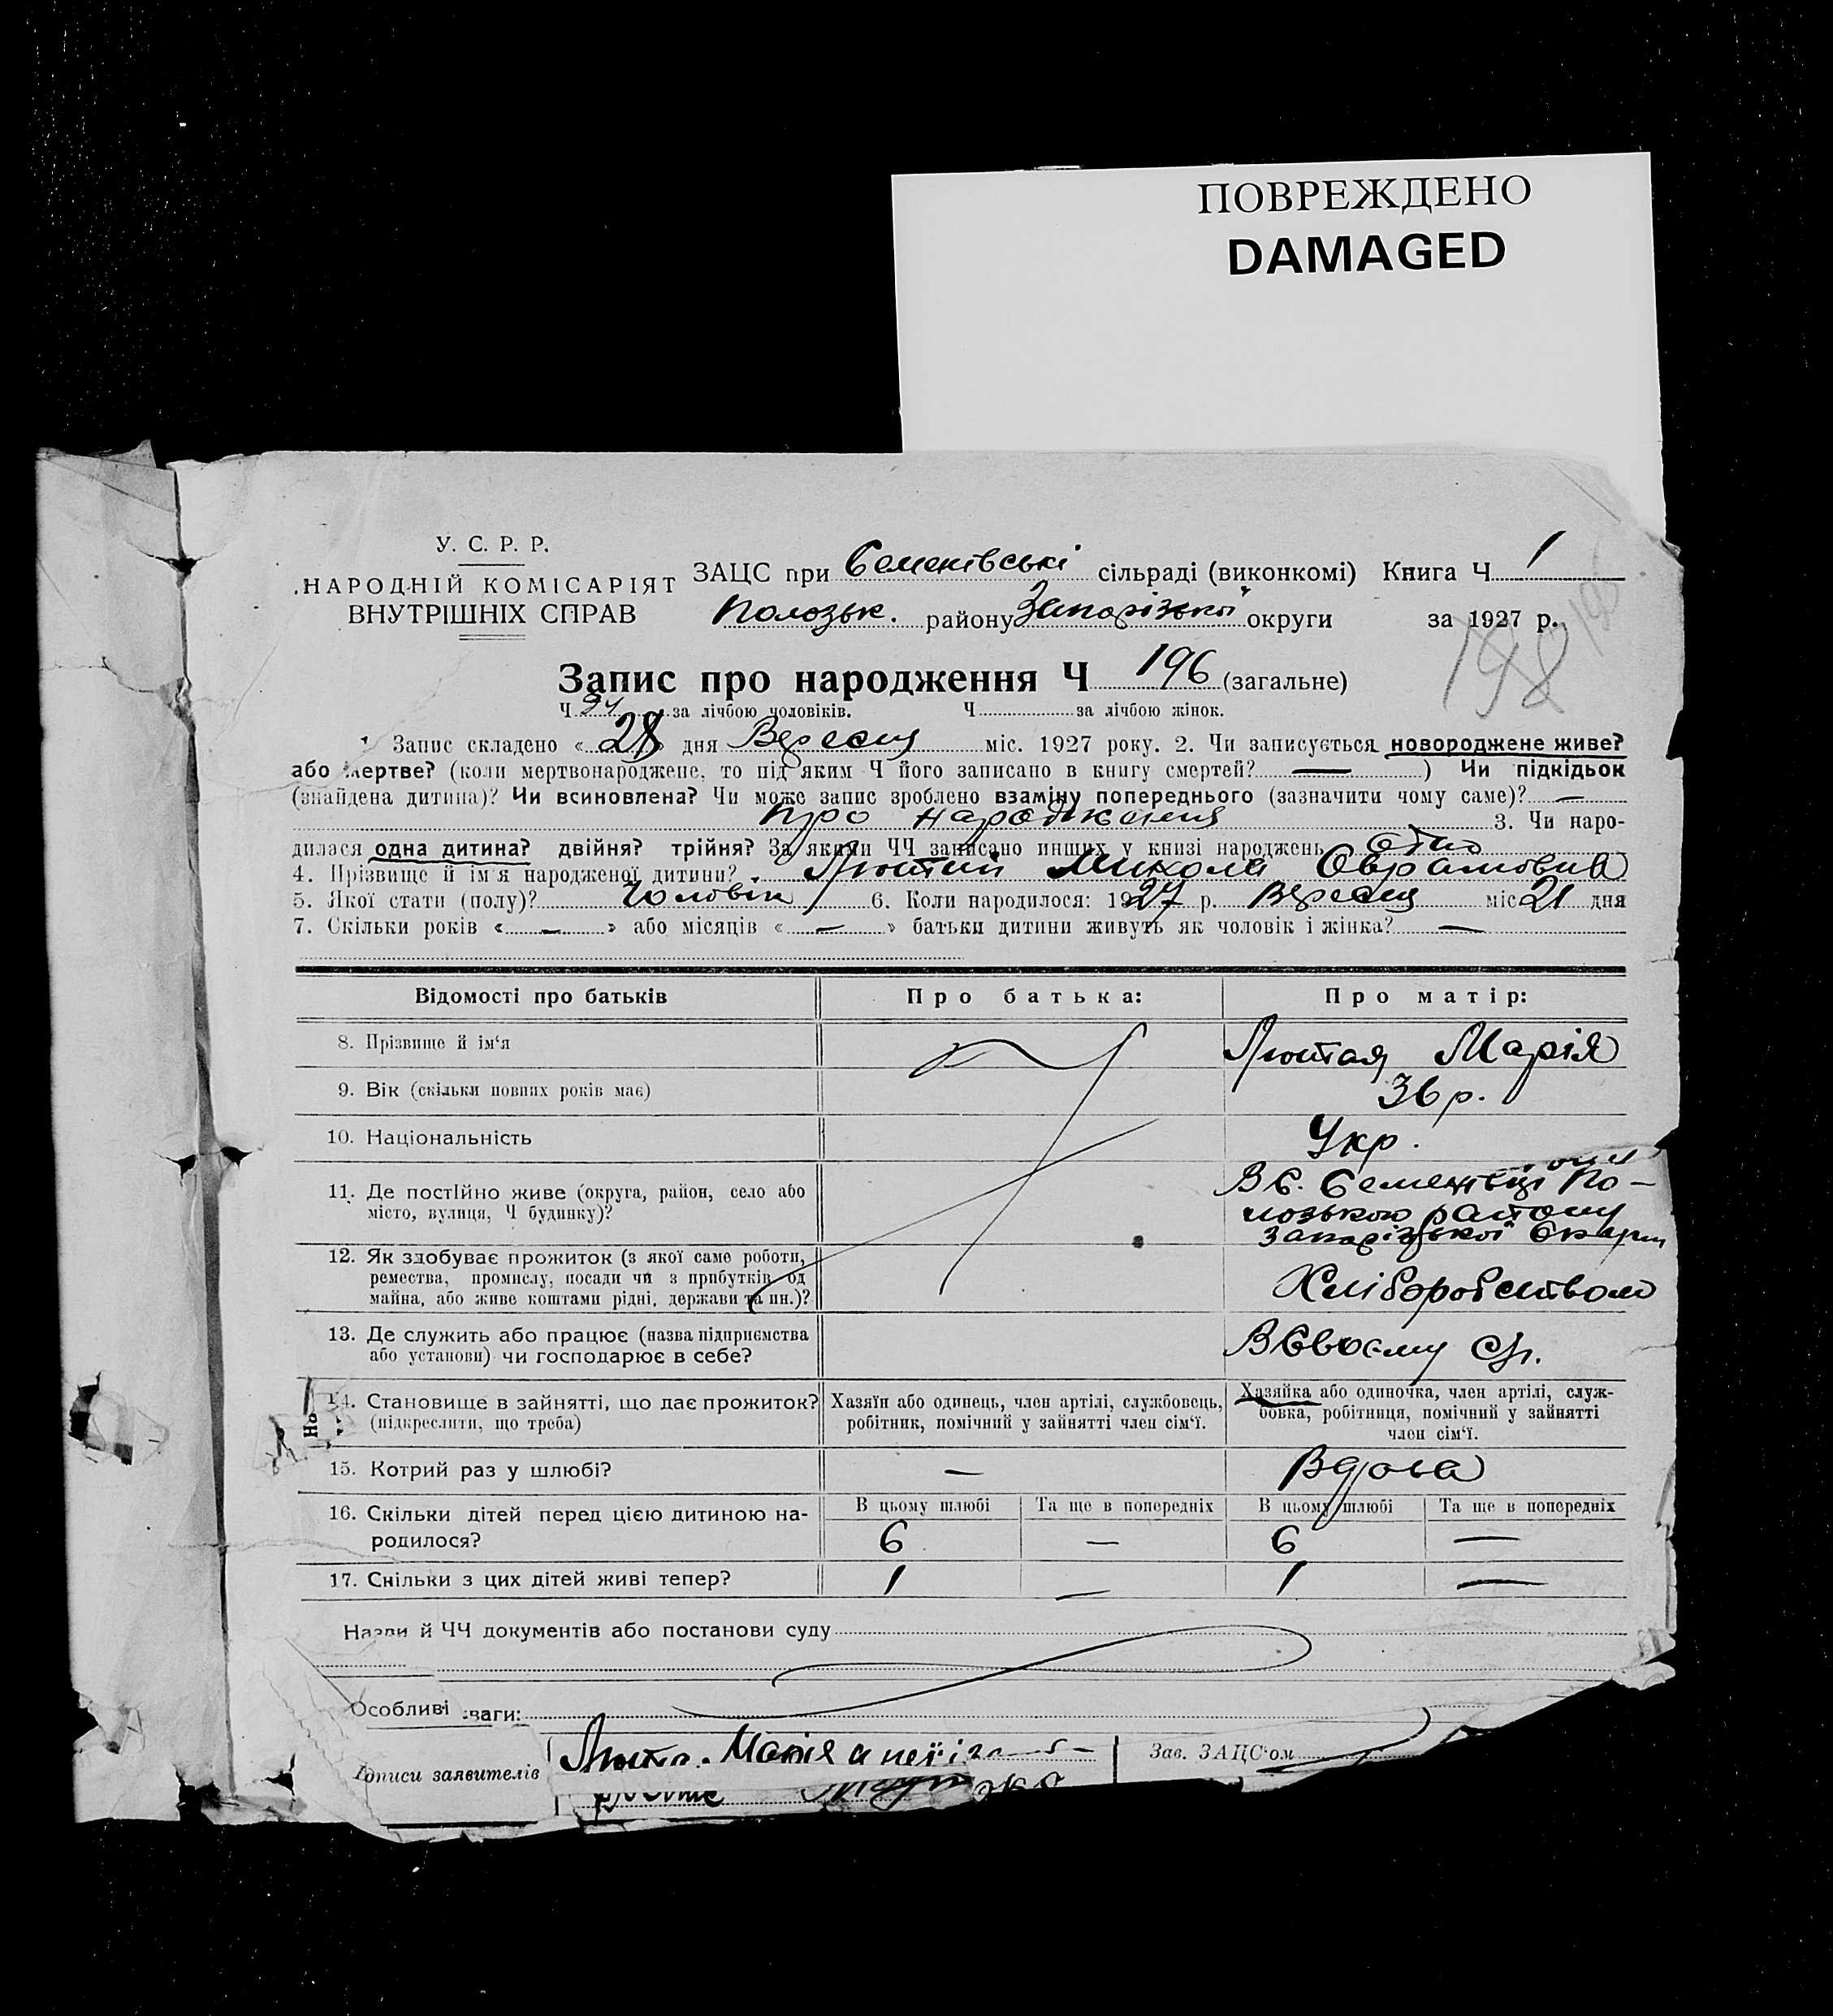 ПОВРЕЖДЕНО
DAMAGED
У. С. Р. Р.
НАРОДНІЙ КОМІСАРІЯТ
ВНУТРІШНІХ СПРАВ
ЗАЦС при Семенівські сільраді (виконкомі) Книга Ч 1
Полозьк. району Запорізької округи за 1927 р.
198
Запис про народження Ч 196 (загальне)
Ч 94 за лічбою чоловіків. Ч за лічбою жінок.
1. Запис складено « 28 » дня Вересня міс. 1927 року. 2. Чи записується новороджене живе?
або мертве? (коли мертвонароджене, то під яким Ч його записано в книгу смертей? — ) Чи підкідьок
(знайдена дитина)? Чи всиновлена? Чи може запис зроблено взаміну попереднього (зазначити чому саме)? —
про народження 3. Чи наро-
дилася одна дитина? двійня? трійня? За якими ЧЧ записано инших у книзі народжень одно
4. Прізвище й ім'я народженої дитини? Лютий Микола Оврамовив
5. Якої стати (полу)? Чоловік 6. Коли народилося: 1927 р. Вересня міс 21 дня
7. Скільки років « — » або місяців « — » батьки дитини живуть як чоловік і жінка? —
Відомості про батьків Про батька: Про матір:
8. Прізвище й ім'я Лютая Марія
9. Вік (скільки повних років має) 36 р.
10. Національність Укр.
11. Де постійно живе (округа, район, село або
місто, вулиця, Ч будинку)?
В С. Семенівці По-
лозького району
Запорізької Округи
12. Як здобуває прожиток (з якої саме роботи,
ремества, промислу, посади чи з прибутків од
майна, або живе коштами рідні, держави та ин.)?
Хліборобством
13. Де служить або працює (назва підприємства
або установи) чи господарює в себе?
В Своєму
14. Становище в зайнятті, що дає прожиток?
(підкреслити, що треба)
Хазяїн або одинець, член артілі, службовець,
робітник, помічний у зайнятті член сім'ї.
Хазяйка або одиночка, член артілі, служ-
бовка, робітниця, помічний у зайнятті
член сім'ї.
15. Котрий раз у шлюбі? — Вдова
16. Скільки дітей перед цією дитиною на-
родилося?
В цьому шлюбі Та ще в попередніх В цьому шлюбі Та ще в попередніх
6 — 6 —
17. Скільки з цих дітей живі тепер? 1 — 1 —
Назви й ЧЧ документів або постанови суду
Особливі ваги:
Подписи заявителів Люта. Марія а неї
Зав. ЗАЦС'ом